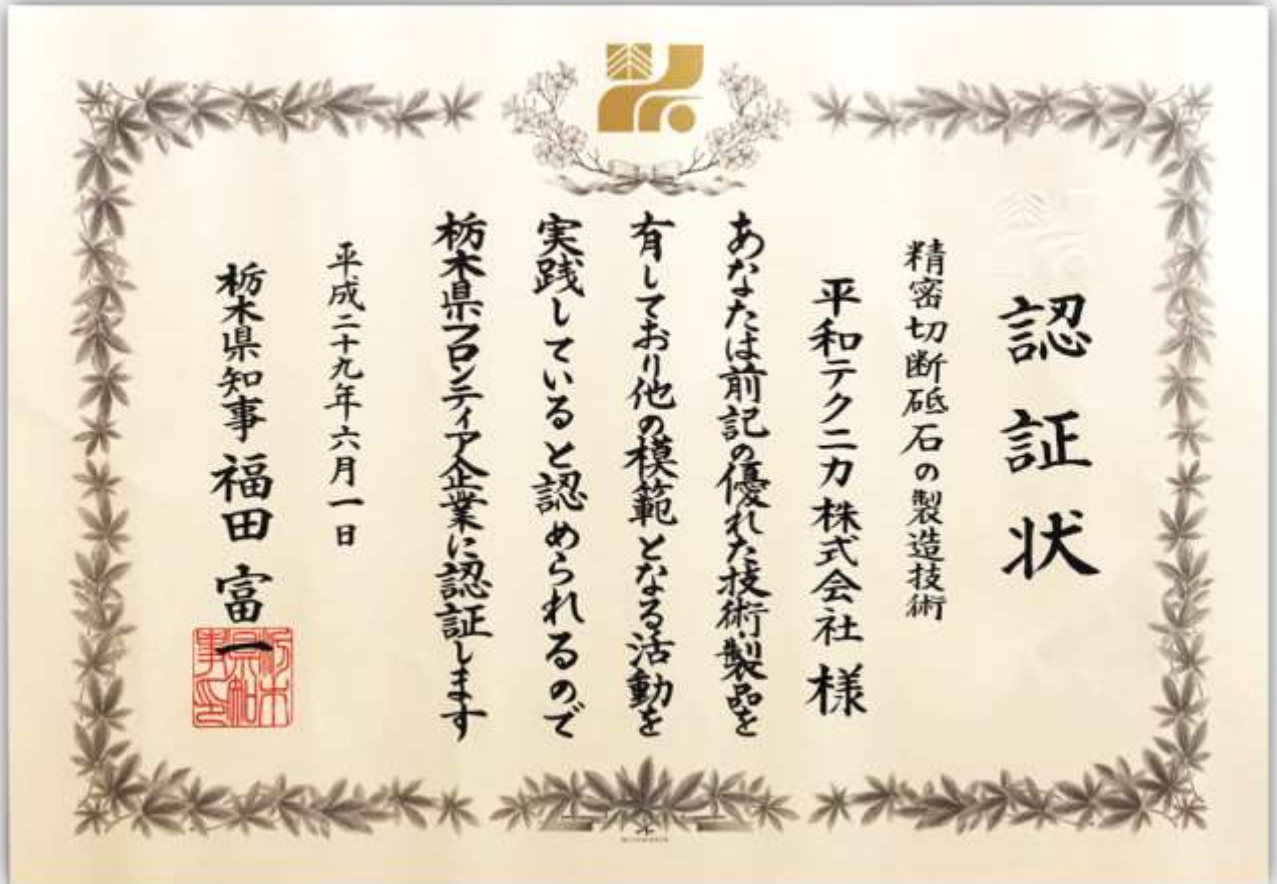 認証状
精密切断砥石の製造技術
平和テクニカ株式会社 様
あなたは前記の優れた技術・製品を
有しており他の模範となる活動を
実践していると認められるので
栃木県フロンティア企業に認証します
平成二十九年六月一日
栃木県知事 福田 富一
栃木県知事印